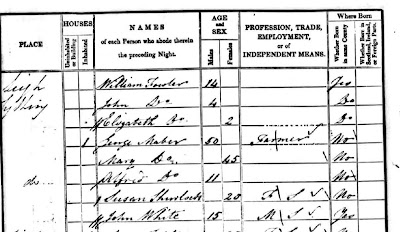 PLACE
HOUSES
Uninhabited or Building
Inhabited
NAMES
of each Person who abode therein the preceding Night.
AGE and SEX
Males
Females
PROFESSION, TRADE, EMPLOYMENT, or of INDEPENDENT MEANS.
Where Born
Whether Born in same County
Whether Born in Scotland, Ireland, or Foreign Parts.
William Fowler 14 Yes
John Do 4 Do
Elizabeth Do 2 Do
1 George Maber 50 Farmer No
Mary Do 45 No
do Alfred Do 11 No
Susan Sherlock 20 F S No
John White 15 M S Yes